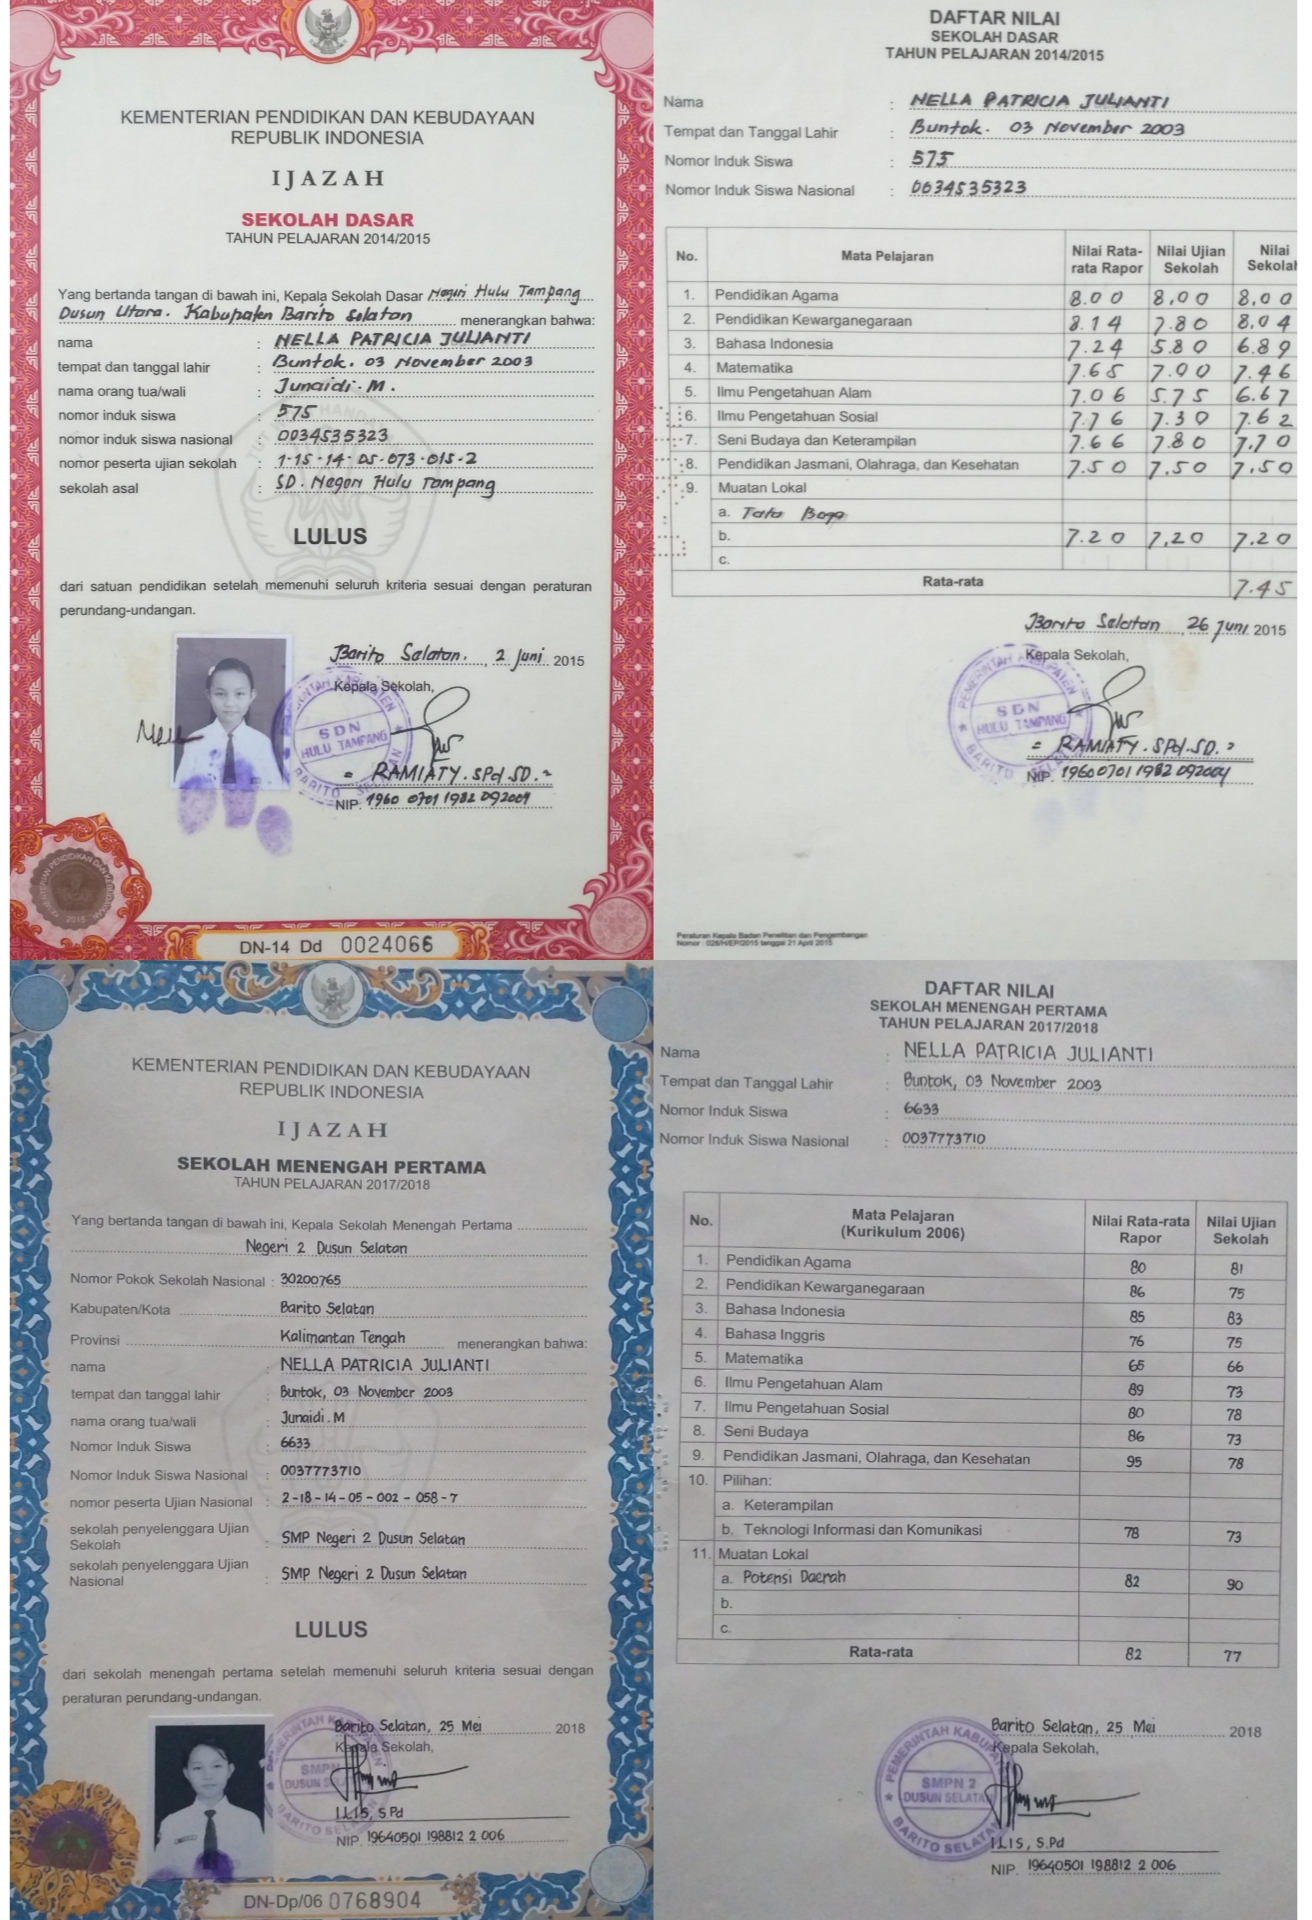 KEMENTERIAN PENDIDIKAN DAN KEBUDAYAAN
REPUBLIK INDONESIA
IJAZAH
SEKOLAH DASAR
TAHUN PELAJARAN 2014/2015
Yang bertanda tangan di bawah ini, Kepala Sekolah Dasar Negeri Hulu Tampang
Dusun Utara. Kabupaten Barito Selatan menerangkan bahwa:
nama : NELLA PATRICIA JULIANTI
tempat dan tanggal lahir : Buntok. 03 November 2003
nama orang tua/wali : Junaidi. M.
nomor induk siswa : 575
nomor induk siswa nasional : 0034535323
nomor peserta ujian sekolah : 1-15-14-05-073-015-2
sekolah asal : SD. Negeri Hulu Tampang
LULUS
dari satuan pendidikan setelah memenuhi seluruh kriteria sesuai dengan peraturan
perundang-undangan.
Barito Selatan. , 2 Juni 2015
Kepala Sekolah,
PEMERINTAH KABUPATEN
SDN
HULU TAMPANG
BARITO SELATAN
= RAMIATY. SPd. SD. =
NIP. 1960 0701 1982 092004
KEMENTERIAN PENDIDIKAN DAN KEBUDAYAAN
2015
DN-14 Dd 0024066
DAFTAR NILAI
SEKOLAH DASAR
TAHUN PELAJARAN 2014/2015
Nama : NELLA PATRICIA JULIANTI
Tempat dan Tanggal Lahir : Buntok. 03 November 2003
Nomor Induk Siswa : 575
Nomor Induk Siswa Nasional : 0034535323
No. Mata Pelajaran Nilai Rata-rata Rapor Nilai Ujian Sekolah Nilai Sekolah
1. Pendidikan Agama 8.00 8,00 8,00
2. Pendidikan Kewarganegaraan 8.14 7.80 8,04
3. Bahasa Indonesia 7.24 5.80 6.89
4. Matematika 7.65 7.00 7.46
5. Ilmu Pengetahuan Alam 7.06 5.75 6.67
6. Ilmu Pengetahuan Sosial 7.76 7.30 7.62
7. Seni Budaya dan Keterampilan 7.66 7.80 7.70
8. Pendidikan Jasmani, Olahraga, dan Kesehatan 7.50 7,50 7,50
9. Muatan Lokal
a. Tata Boga
b. 7.20 7,20 7.20
c.
Rata-rata 7.45
Barito Selatan , 26 Juni 2015
Kepala Sekolah,
PEMERINTAH KABUPATEN
SDN
HULU TAMPANG
BARITO SELATAN
= RAMIATY. SPd. SD. =
NIP. 19600701 1982 092004
Peraturan Kepala Badan Penelitian dan Pengembangan
Nomor : 028/H/EP/2015 tanggal 21 April 2015
KEMENTERIAN PENDIDIKAN DAN KEBUDAYAAN
REPUBLIK INDONESIA
IJAZAH
SEKOLAH MENENGAH PERTAMA
TAHUN PELAJARAN 2017/2018
Yang bertanda tangan di bawah ini, Kepala Sekolah Menengah Pertama
Negeri 2 Dusun Selatan
Nomor Pokok Sekolah Nasional : 30200765
Kabupaten/Kota Barito Selatan
Provinsi Kalimantan Tengah menerangkan bahwa:
nama : NELLA PATRICIA JULIANTI
tempat dan tanggal lahir : Buntok, 03 November 2003
nama orang tua/wali : Junaidi. M
Nomor Induk Siswa : 6633
Nomor Induk Siswa Nasional : 0037773710
nomor peserta Ujian Nasional : 2-18-14-05-002-058-7
sekolah penyelenggara Ujian
Sekolah : SMP Negeri 2 Dusun Selatan
sekolah penyelenggara Ujian
Nasional : SMP Negeri 2 Dusun Selatan
LULUS
dari sekolah menengah pertama setelah memenuhi seluruh kriteria sesuai dengan
peraturan perundang-undangan.
Barito Selatan, 25 Mei 2018
Kepala Sekolah,
SMPN
DUSUN
BARITO SELATAN
ILIS, S.Pd
NIP. 19640501 198812 2 006
DN-Dp/06 0768904
DAFTAR NILAI
SEKOLAH MENENGAH PERTAMA
TAHUN PELAJARAN 2017/2018
Nama : NELLA PATRICIA JULIANTI
Tempat dan Tanggal Lahir : Buntok, 03 November 2003
Nomor Induk Siswa : 6633
Nomor Induk Siswa Nasional : 0037773710
No. Mata Pelajaran (Kurikulum 2006) Nilai Rata-rata Rapor Nilai Ujian Sekolah
1. Pendidikan Agama 80 81
2. Pendidikan Kewarganegaraan 86 75
3. Bahasa Indonesia 85 83
4. Bahasa Inggris 76 75
5. Matematika 65 66
6. Ilmu Pengetahuan Alam 89 73
7. Ilmu Pengetahuan Sosial 80 78
8. Seni Budaya 86 73
9. Pendidikan Jasmani, Olahraga, dan Kesehatan 95 78
10. Pilihan:
a. Keterampilan
b. Teknologi Informasi dan Komunikasi 78 73
11. Muatan Lokal
a. Potensi Daerah 82 90
b.
c.
Rata-rata 82 77
Barito Selatan, 25 Mei 2018
Kepala Sekolah,
PEMERINTAH KABUPATEN
SMPN 2
DUSUN SELATAN
BARITO SELATAN
ILIS, S.Pd
NIP. 19640501 198812 2 006